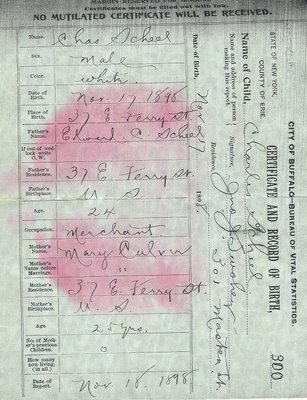 MARGIN RESERVED FOR BINDING
Certificates must be filled out with ink.
NO MUTILATED CERTIFICATE WILL BE RECEIVED.
Name
Chas Scheel
Sex.
Male
Color.
white
Date of Birth.
Nov. 17 1898
Place of Birth.
37 E. Ferry St.
Father's Name
Edward C. Scheel
If out of wed lock write O. W.
Father's Residence.
37 E. Ferry St.
Father's Birthplace.
U. S
Age.
24
Occupation.
Merchant
Mother's Name
Mary Culvin
Mother's Name before Marriage.
" "
Mother's Residence.
37 E. Ferry St.
Mother's Birthplace.
U. S
Age
25 yrs.
No. of Mother's previous Children.
0
How many now living, (in all.)
Date of Report.
Nov. 18, 1898
STATE OF NEW YORK,
COUNTY OF ERIE.
CITY OF BUFFALO—BUREAU OF VITAL STATISTICS,
CERTIFICATE AND RECORD OF BIRTH,
300.
Name of Child,
Charles Scheel
Date of Birth,
Nov 17
1898
Name and address of person making this report.
Signature,
Residence,
301